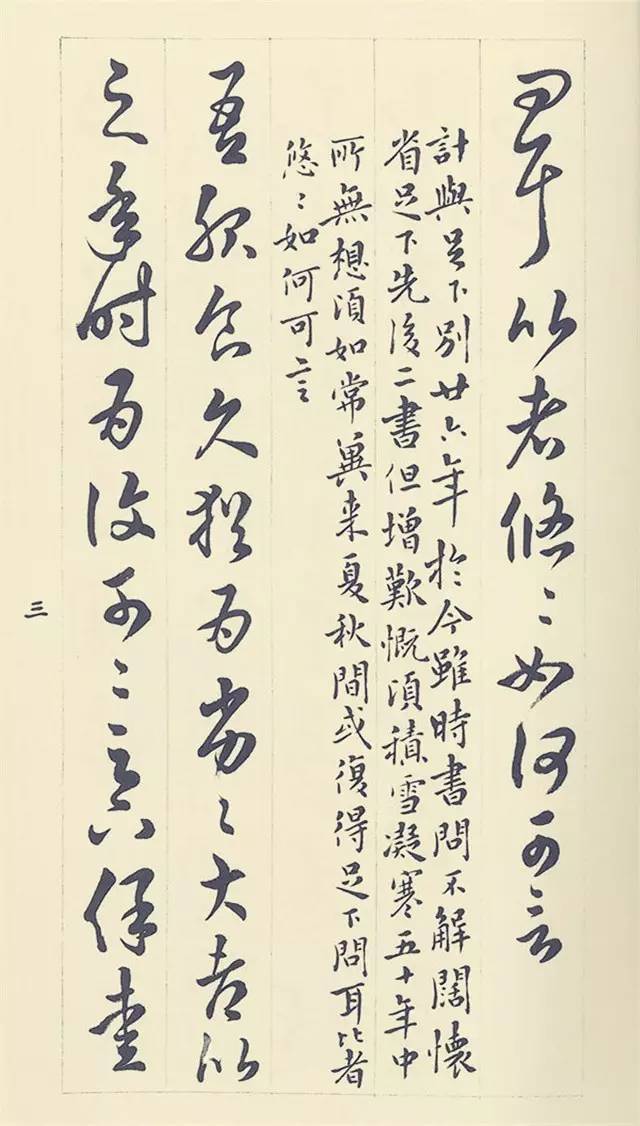 問耳比者悠〻如何可言
計與足下別廿六年於今雖時書問不解闊懷
省足下先後二書但增歎慨頃積雪凝寒五十年中
所無想頃如常冀来夏秋間或復得足下問耳比者
悠〻如何可言
吾服食久猶為劣〻大都比
之年時為復可〻足下保愛
三